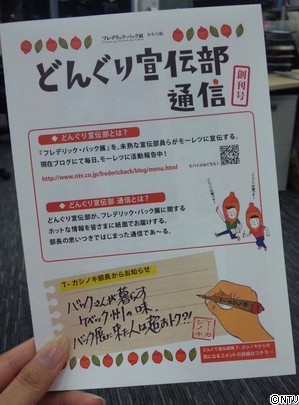 フレデリック・バック展 かわら版
どんぐり宣伝部
通信
創刊号
◆ どんぐり宣伝部とは?
『フレデリック・バック展』を、未熟な宣伝部員らがモーレツに宣伝する。
現在ブログにて毎日、モーレツに活動報告中!
http://www.ntv.co.jp/fredericback/blog/menu.html
◆ どんぐり宣伝部 通信とは?
どんぐり宣伝部が、フレデリック・バック展に関する
ホットな情報を皆さまに紙面でお届けする、
部長の思いつきではじまった通信であ〜る。
T・カシノキ部長からお知らせ
バックさんが暮らす
ケベック州の味。
バック展に来た人は超おトク?!
T・カシノキ
どんぐり宣伝部長 T・カシノキから
気になるコメントの詳細はコチラ…
©NTV